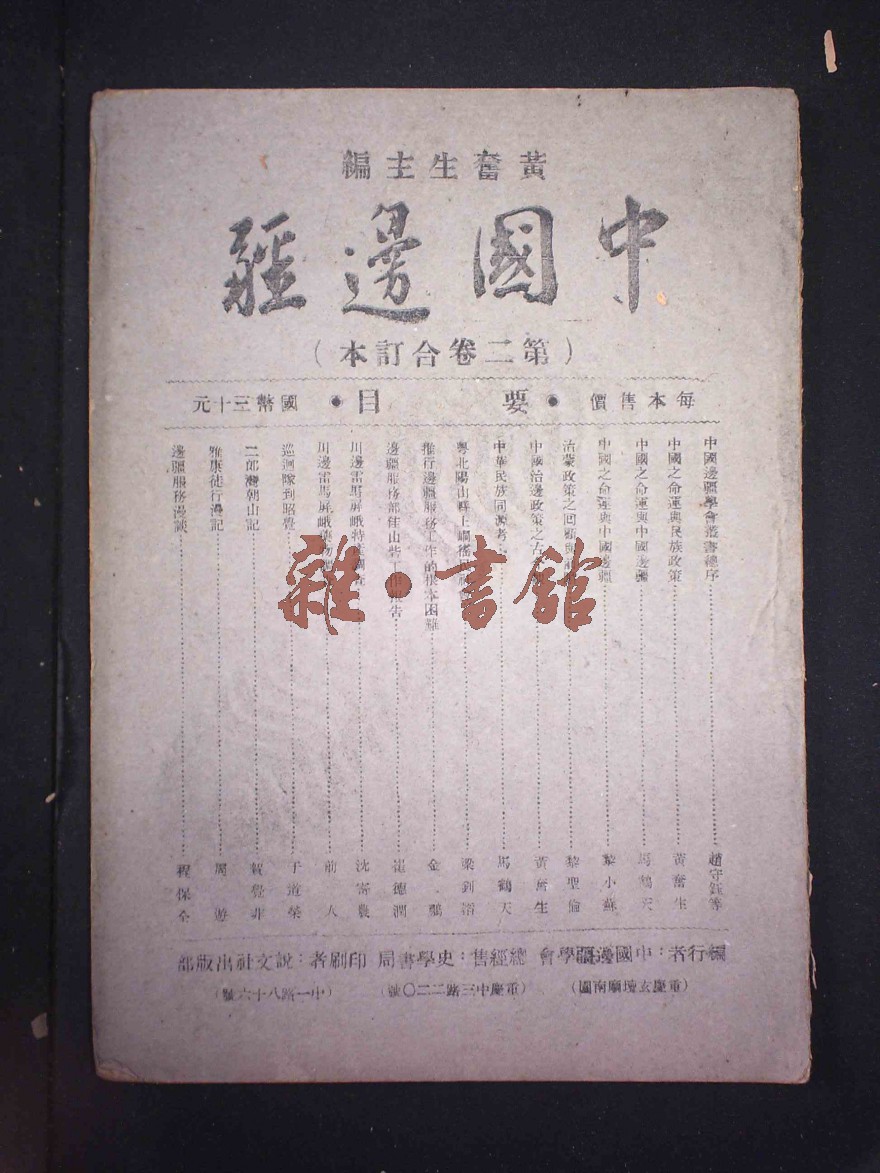 黃奮生主編
中國邊疆
（第二卷合訂本）
每本售價•要目•國幣三十元
中國邊疆學會叢書總序 趙守鈺等
中國之命運與民族政策 黃奮生
中國之命運與中國邊疆 馬鶴天
中國之命運與中國邊疆 黎小蘇
治蒙政策之回顧與 黎聖倫
中國治邊政策之古 黃奮生
中華民族同源考 馬鶴天
粵北陽山縣上峒徭民 梁釗韜
推行邊疆服務工作的根本困難 金鶚
邊疆服務部佳山寨工作報告 崔德潤
川邊雷馬屏峨特 沈寄農
川邊雷馬屏峨 前人
巡迴隊到昭覺 于道榮
二郎灣朝山記 覺非
雅康徒行漫記 周遊
邊疆服務漫談 程保全
編行者：中國邊疆學會 總經售：史學書局 印刷者：說文社出版部
（重慶玄壇廟南園） （重慶中三路二二〇號） （中一路八十六號）
雜•書館